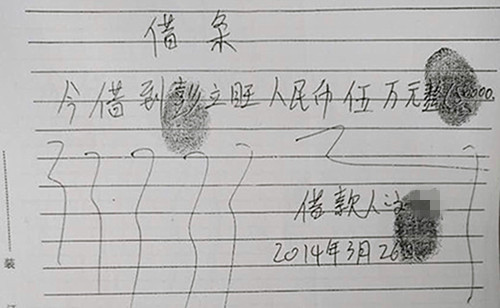 借条
今借到彭立旺人民币伍万元整
借款人
2014年3月26
装